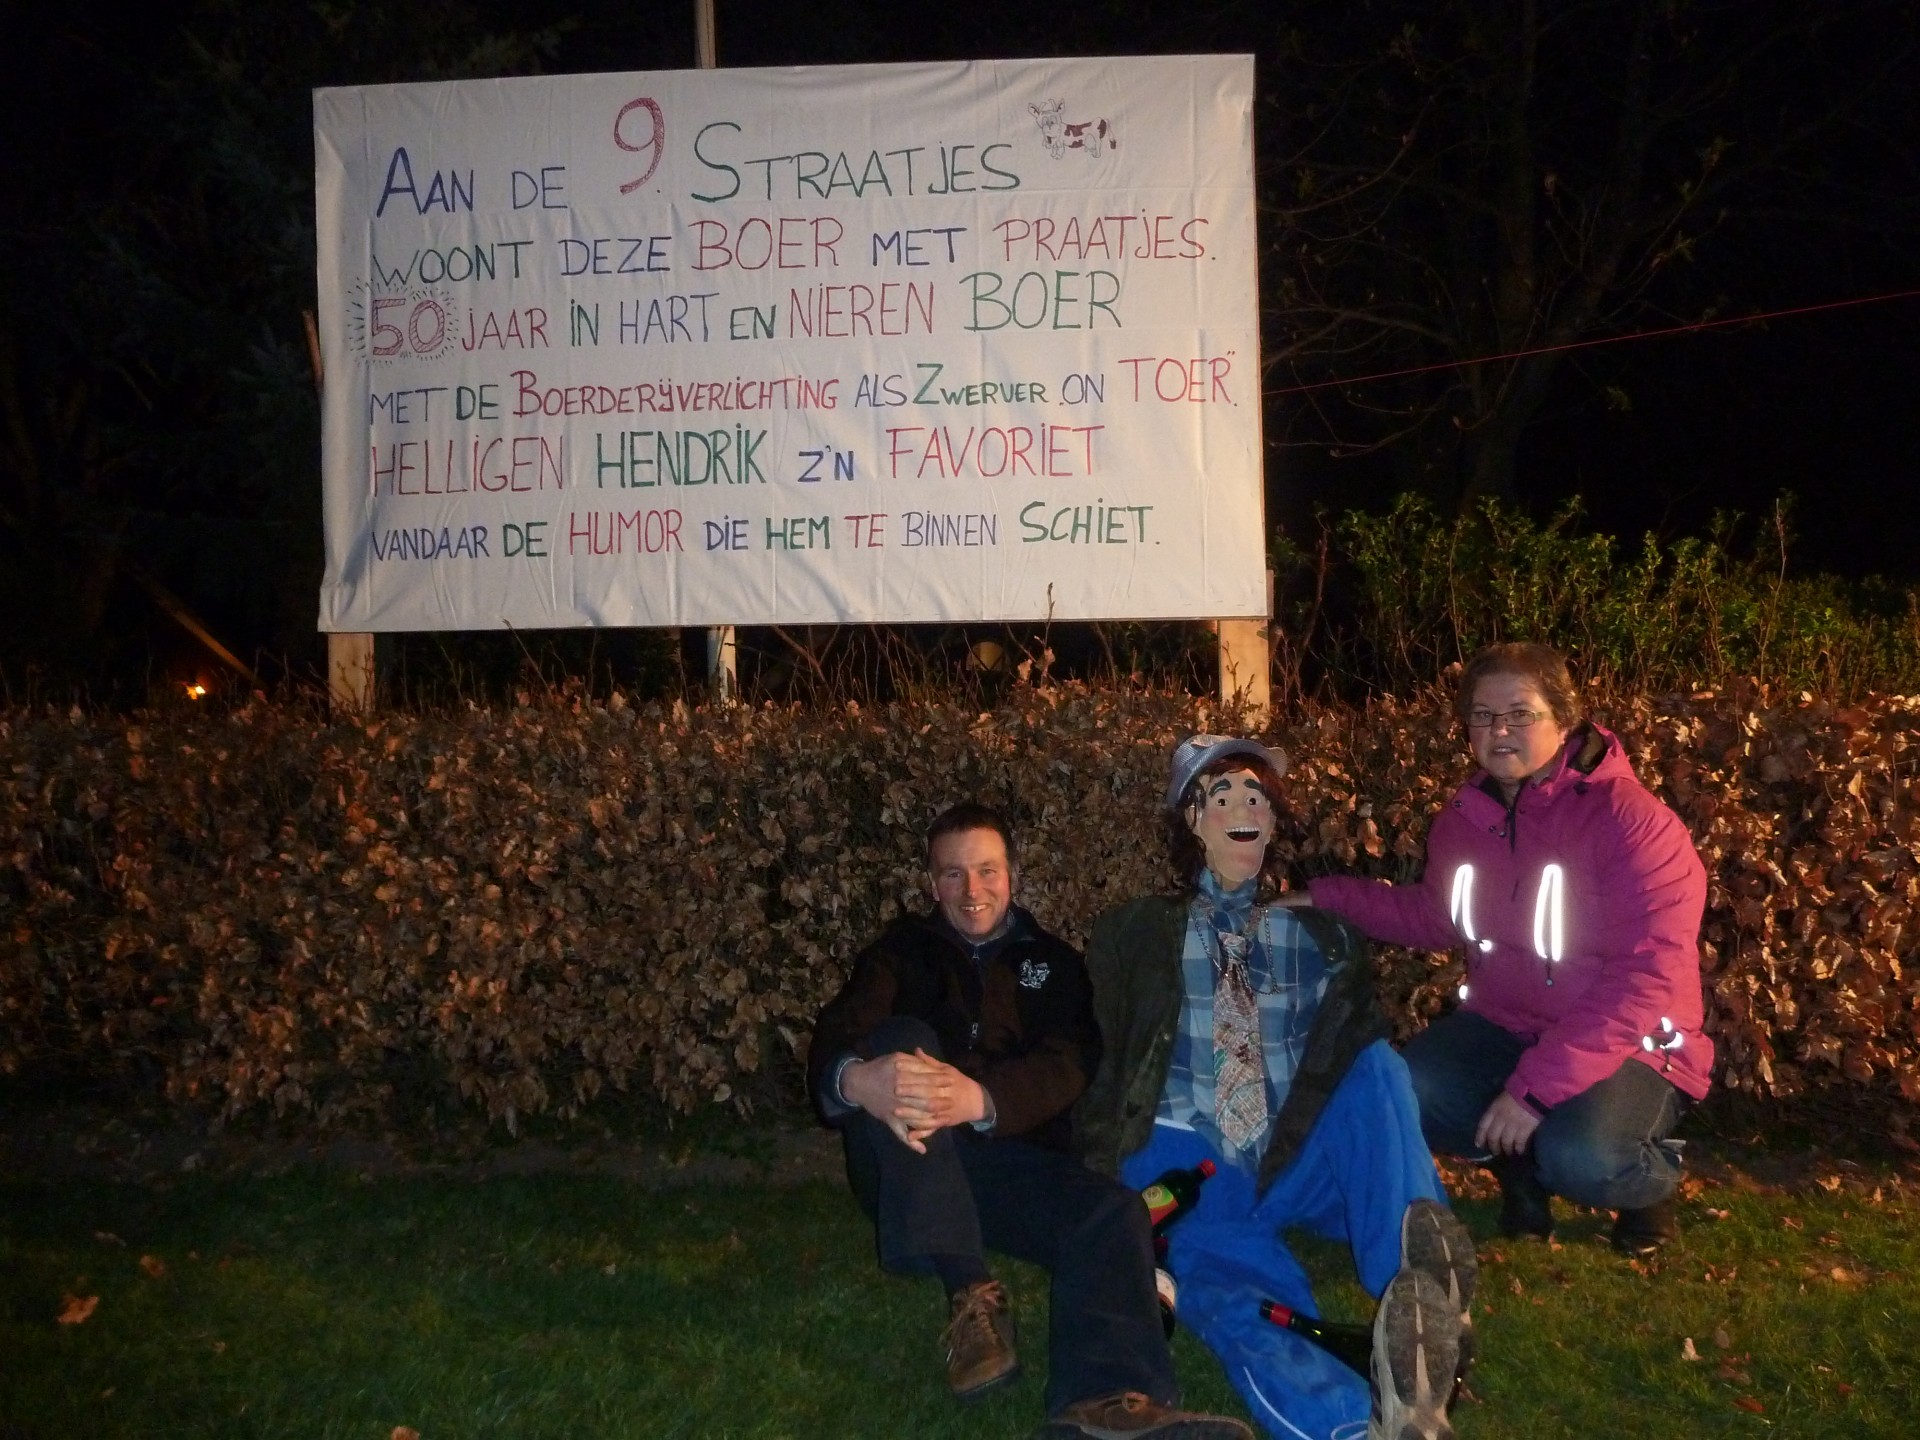 AAN DE 9. STRAATJES
WOONT DEZE BOER MET PRAATJES.
50 JAAR IN HART EN NIEREN BOER
MET DE BOERDERIJVERLICHTING ALS ZWERVER „ON TOER".
HELLIGEN HENDRIK Z'N FAVORIET
VANDAAR DE HUMOR DIE HEM TE BINNEN SCHIET.